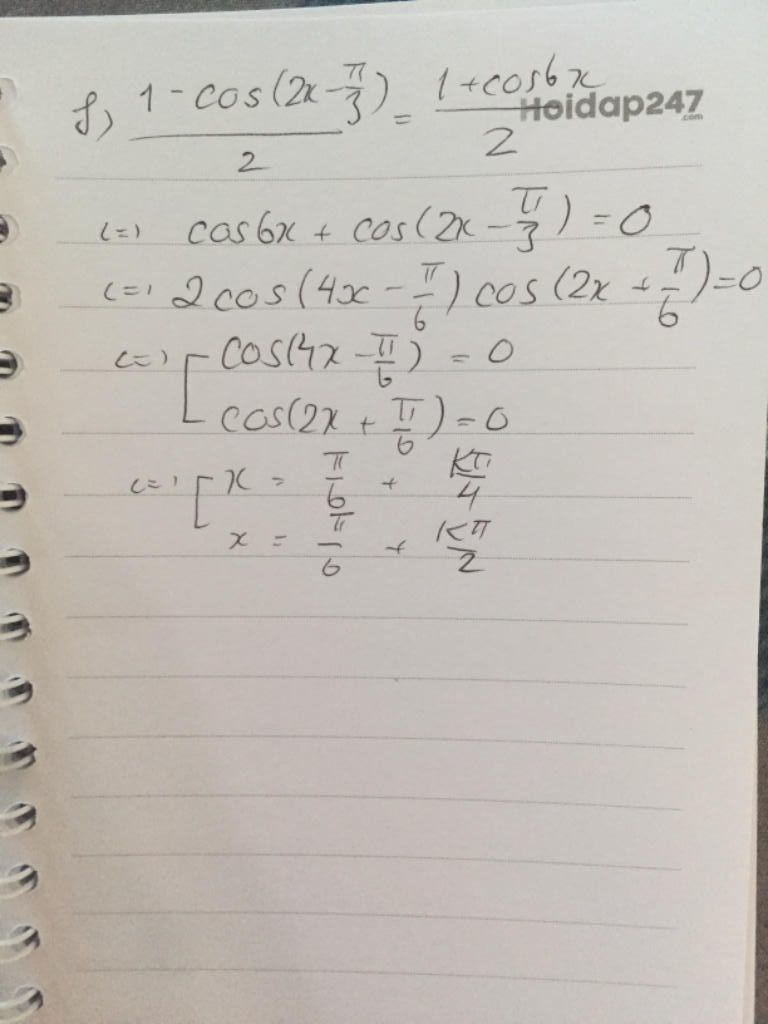 f) (1 - cos(2x - π/3))/2 = (1 + cos6x)/2
Hoidap247.com
(=) cos6x + cos(2x - π/3) = 0
(=) 2cos(4x - π/6) cos(2x + π/6) = 0
(=) [ cos(4x - π/6) = 0
cos(2x + π/6) = 0
(=) [ x = π/6 + kπ/4
x = π/6 + kπ/2